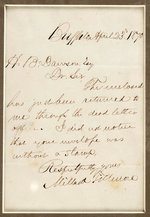 Buffalo, April 23d 1870
H. B. Dawson Esq
Dr Sir
The enclosed
has just been returned to
me through the dead letter
office. I did not notice
that your envelope was
without a stamp.
Respectfully yours
Millard Fillmore